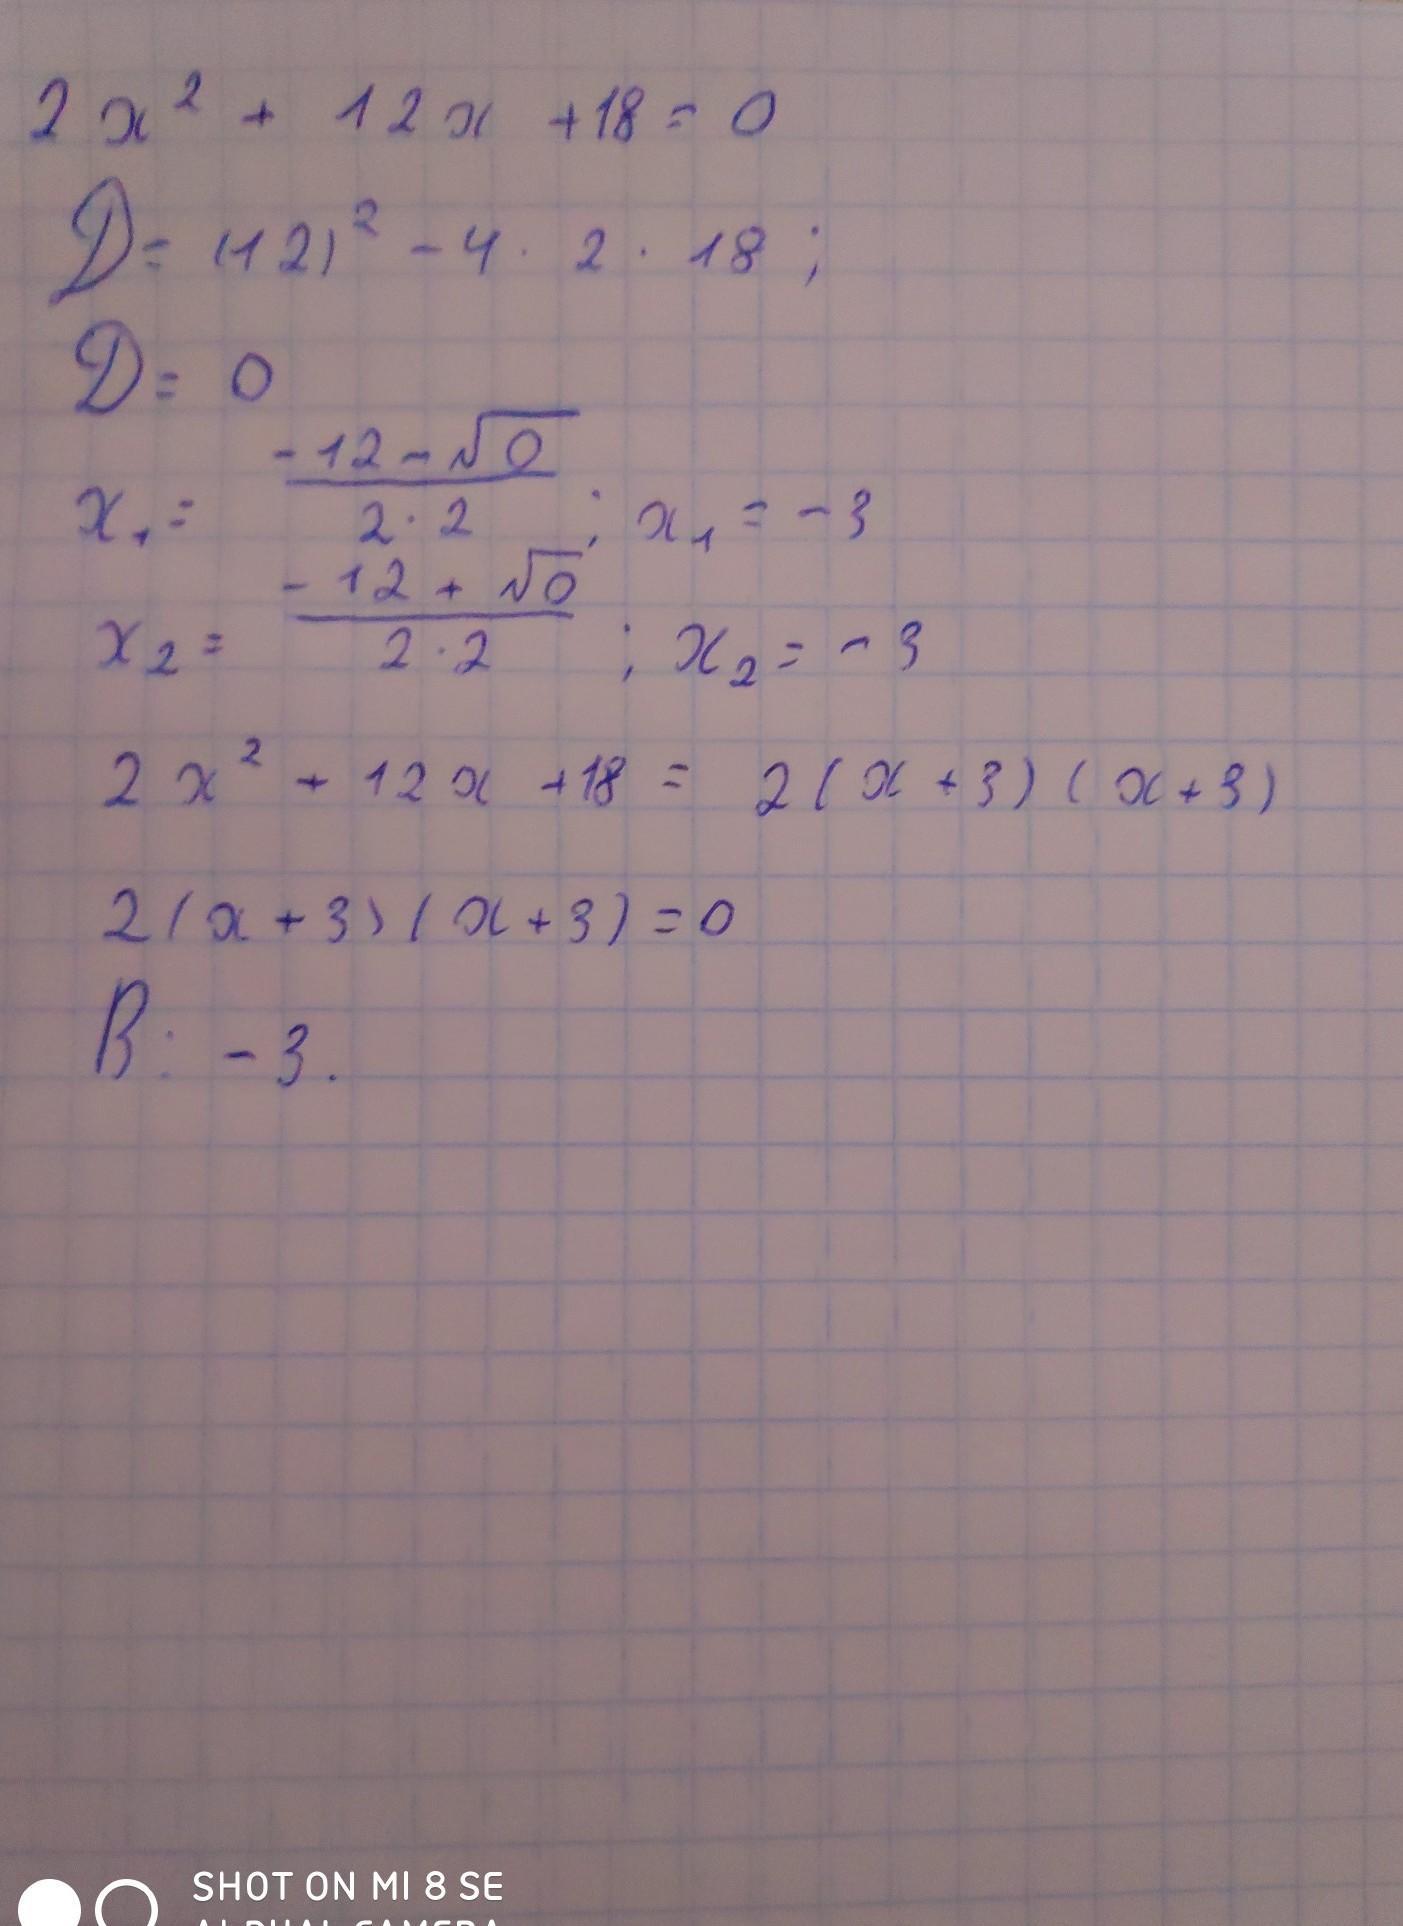 2x² + 12x +18 = 0
D = (12)² - 4 · 2 · 18 ;
D = 0
x₁ = (-12 - √0)/(2 · 2) ; x₁ = -3
x₂ = (-12 + √0)/(2 · 2) ; x₂ = -3
2x² + 12x +18 = 2(x + 3)(x + 3)
2(x + 3)(x + 3) = 0
В: -3.
SHOT ON MI 8 SE
AI DUAL CAMERA